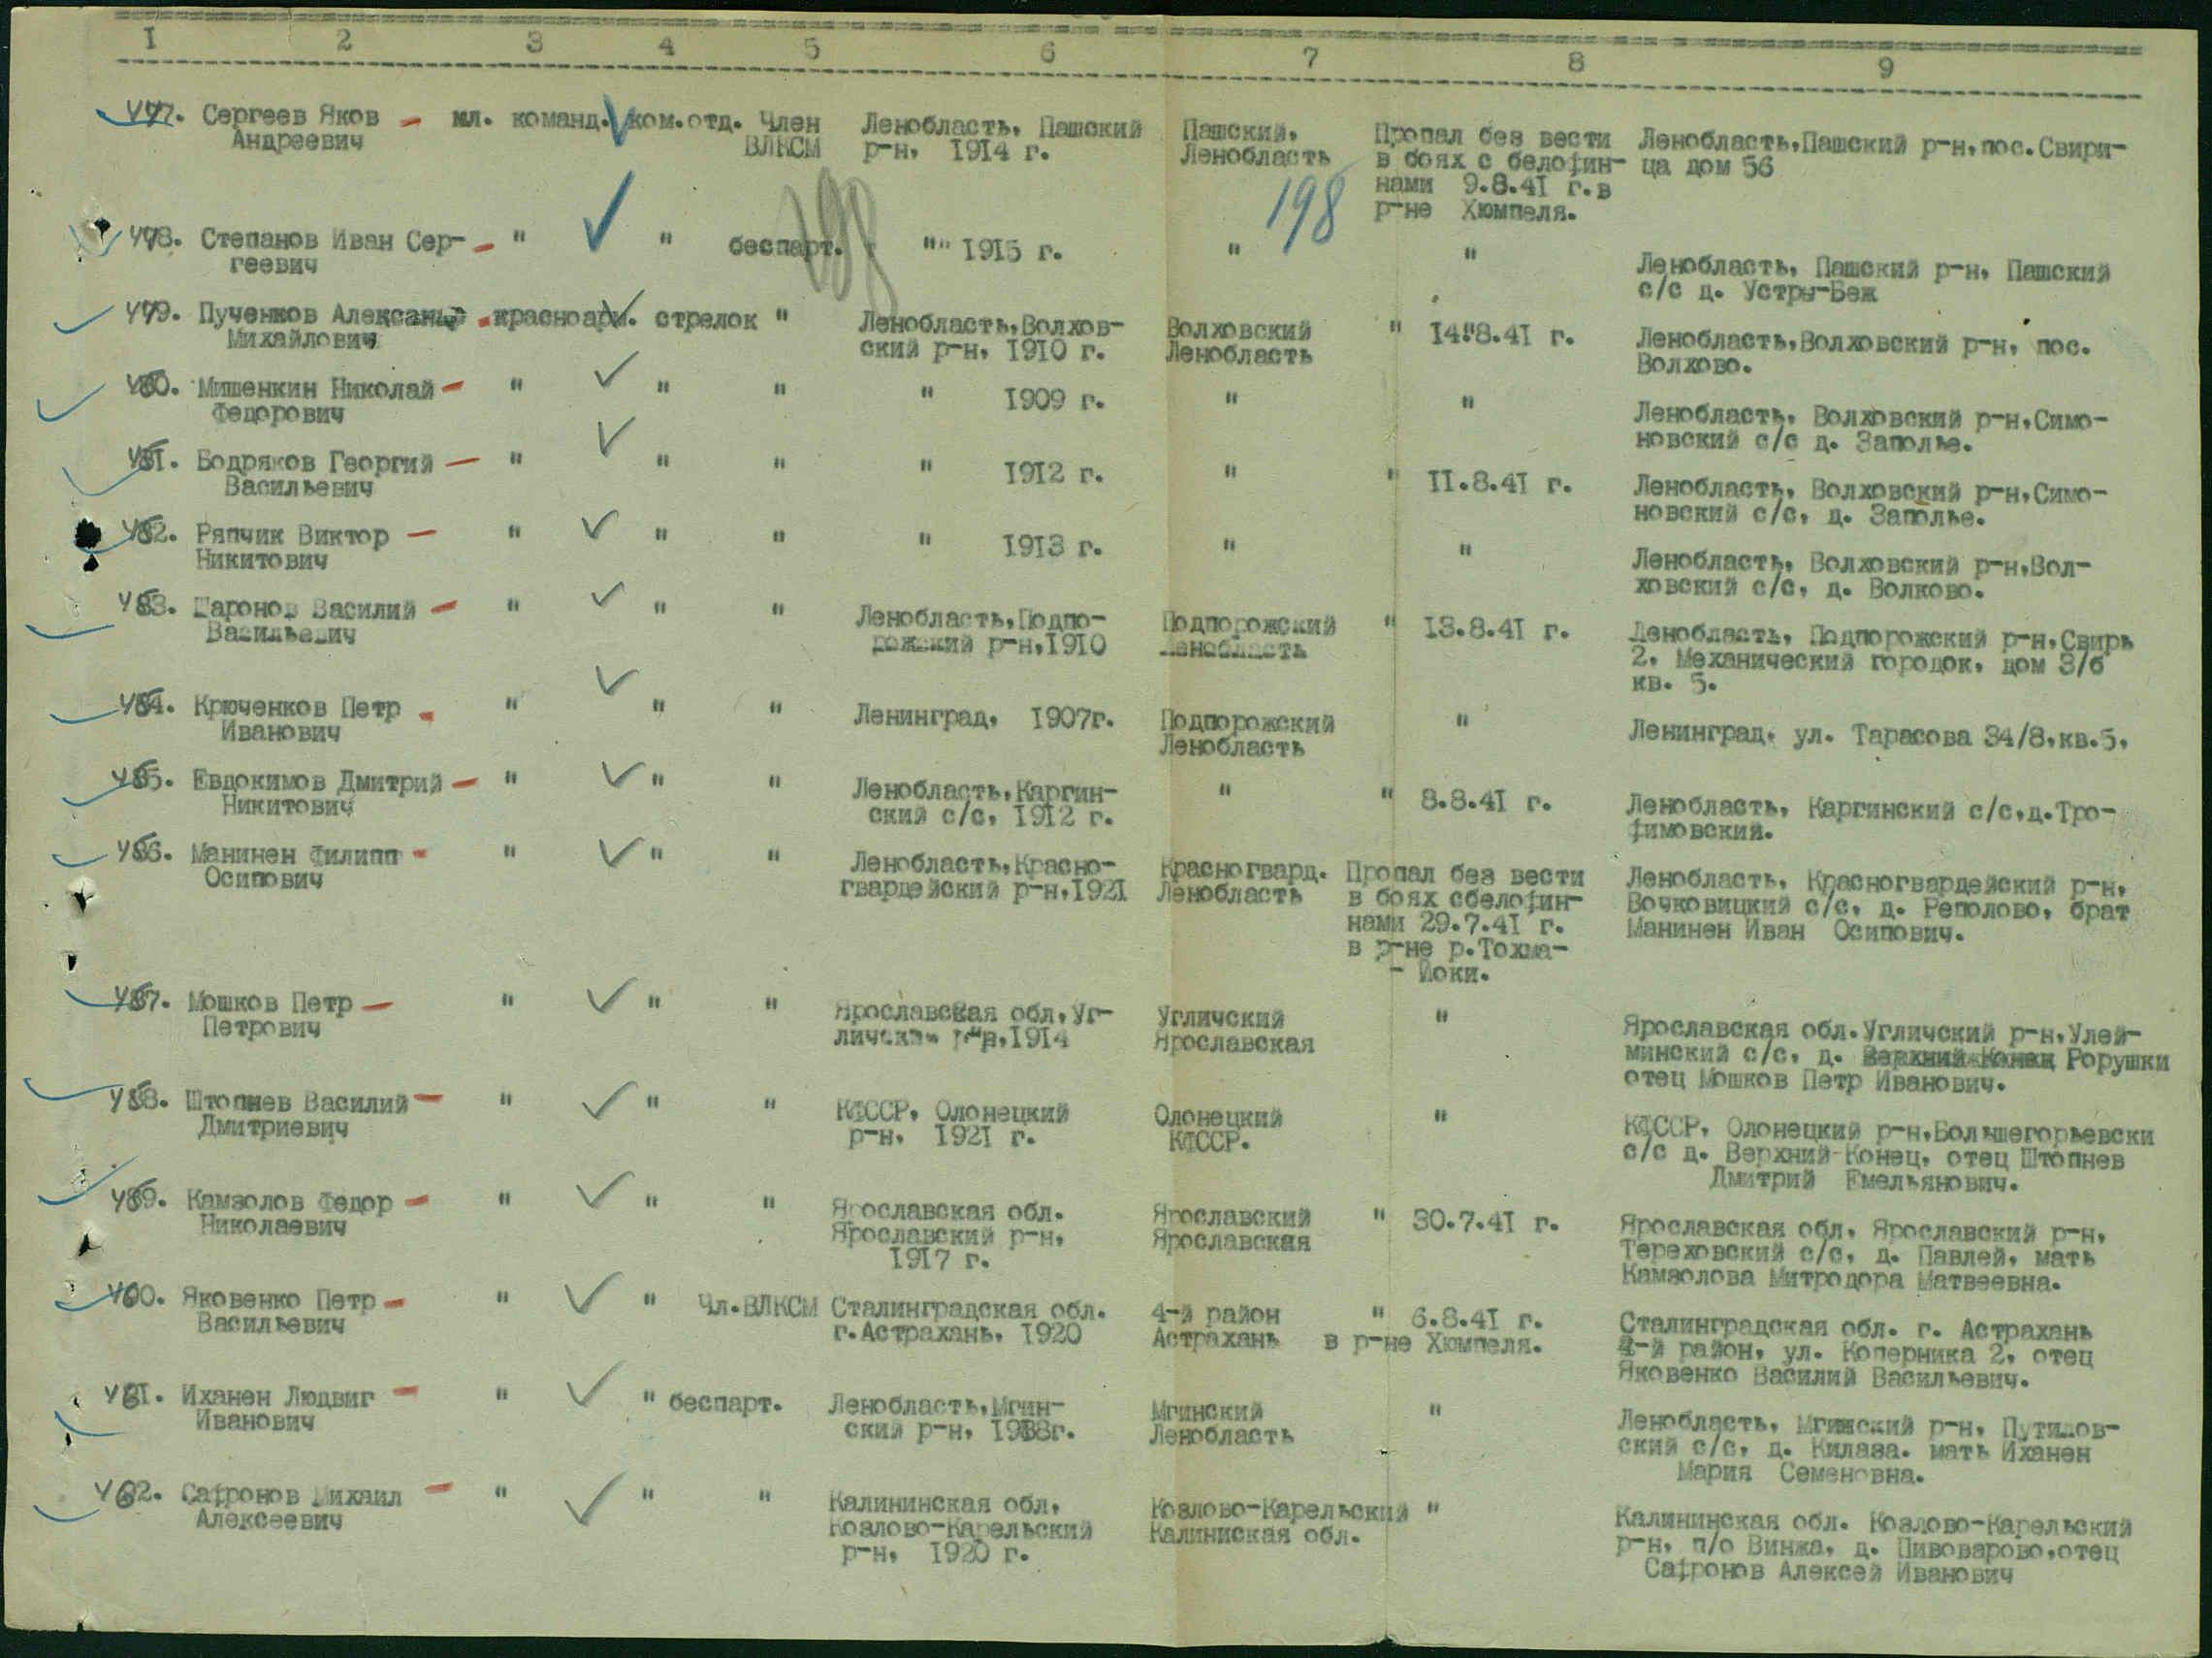 I 2 3 4 5 6 7 8 9
Сергеев Яков мл. команд. ком.отд. Член Ленобласть, Пашский Пашский, Пропал без вести Ленобласть,Пашский р-н,пос.Свири-
Андреевич ВЛКСМ р-н, 1914 г. Ленобласть в боях с белофин- ца дом 56
нами 9.8.41 г.в
р-не Хюмпеля.
198 198
Степанов Иван Сер- " " беспарт. "" 1915 г. " " Ленобласть, Пашский р-н, Пашский
геевич с/с д. Устры-Беж
Пученков Александр красноарм. стрелок " Ленобласть,Волхов- Волховский " 14.8.41 г. Ленобласть,Волховский р-н, пос.
Михайлович ский р-н, 1910 г. Ленобласть Волхово.
Мишенкин Николай " " " " 1909 г. " " Ленобласть, Волховский р-н,Симо-
Федорович новский с/с д. Заполье.
Бодряков Георгий " " " " 1912 г. " " II.8.41 г. Ленобласть, Волховский р-н,Симо-
Васильевич новский с/с, д. Заполье.
Ряпчик Виктор " " " " 1913 г. " " Ленобласть, Волховский р-н,Вол-
Никитович ховский с/с, д. Волково.
Шаронов Василий " " " Ленобласть,Подпо- Подпорожский " 13.8.41 г. Ленобласть, Подпорожский р-н,Свирь
Васильевич рожский р-н,1910 Ленобласть 2, Механический городок, дом 3/6
кв. 5.
Крюченков Петр " " " Ленинград, 1907г. Подпорожский " Ленинград, ул. Тарасова 34/8,кв.5,
Иванович Ленобласть
Евдокимов Дмитрий " " " Ленобласть,Каргин- " " 8.8.41 г. Ленобласть, Каргинский с/с,д.Тро-
Никитович ский с/с, 1912 г. фимовский.
Манинен Филипп " " " Ленобласть,Красно- Красногвард. Пропал без вести Ленобласть, Красногвардейский р-н,
Осипович гвардейский р-н,1921 Ленобласть в боях сбелофин- Вочковицкий с/с, д. Реполово, брат
нами 29.7.41 г. Манинен Иван Осипович.
в р-не р.Тохма-
- Йоки.
Мошков Петр " " " Ярославская обл,Уг- Угличский " Ярославская обл.Угличский р-н,Улей-
Петрович р-н,1914 Ярославская минский с/с, д. Рорушки
отец Мошков Петр Иванович.
Штопнев Василий " " " КФССР, Олонецкий Олонецкий " КФССР, Олонецкий р-н,Большегорьевски
Дмитриевич р-н, 1921 г. КФССР. с/с д. Верхний-Конец, отец Штопнев
Дмитрий Емельянович.
Камзолов Федор " " " Ярославская обл. Ярославский " 30.7.41 г. Ярославская обл, Ярославский р-н,
Николаевич Ярославский р-н, Ярославская Тереховский с/с, д. Павлей, мать
1917 г. Камзолова Митродора Матвеевна.
Яковенко Петр " " Чл.ВЛКСМ Сталинградская обл. 4-й район " 6.8.41 г. Сталинградская обл. г. Астрахань
Васильевич г.Астрахань, 1920 Астрахань в р-не Хюмпеля. 4-й район, ул. Коперника 2, отец
Яковенко Василий Васильевич.
Иханен Людвиг " " беспарт. Ленобласть,Мгин- Мгинский " Ленобласть, Мгинский р-н, Путилов-
Иванович ский р-н, Ленобласть ский с/с, д. Килаза. мать Иханен
Мария Семеновна.
Сафронов Михаил " " " Калининская обл, Козлово-Карельский " Калининская обл. Козлово-Карельский
Алексеевич Козлово-Карельский Калиниская обл. р-н, п/о Винжа, д. Пивоварово,отец
р-н, 1920 г. Сафронов Алексей Иванович